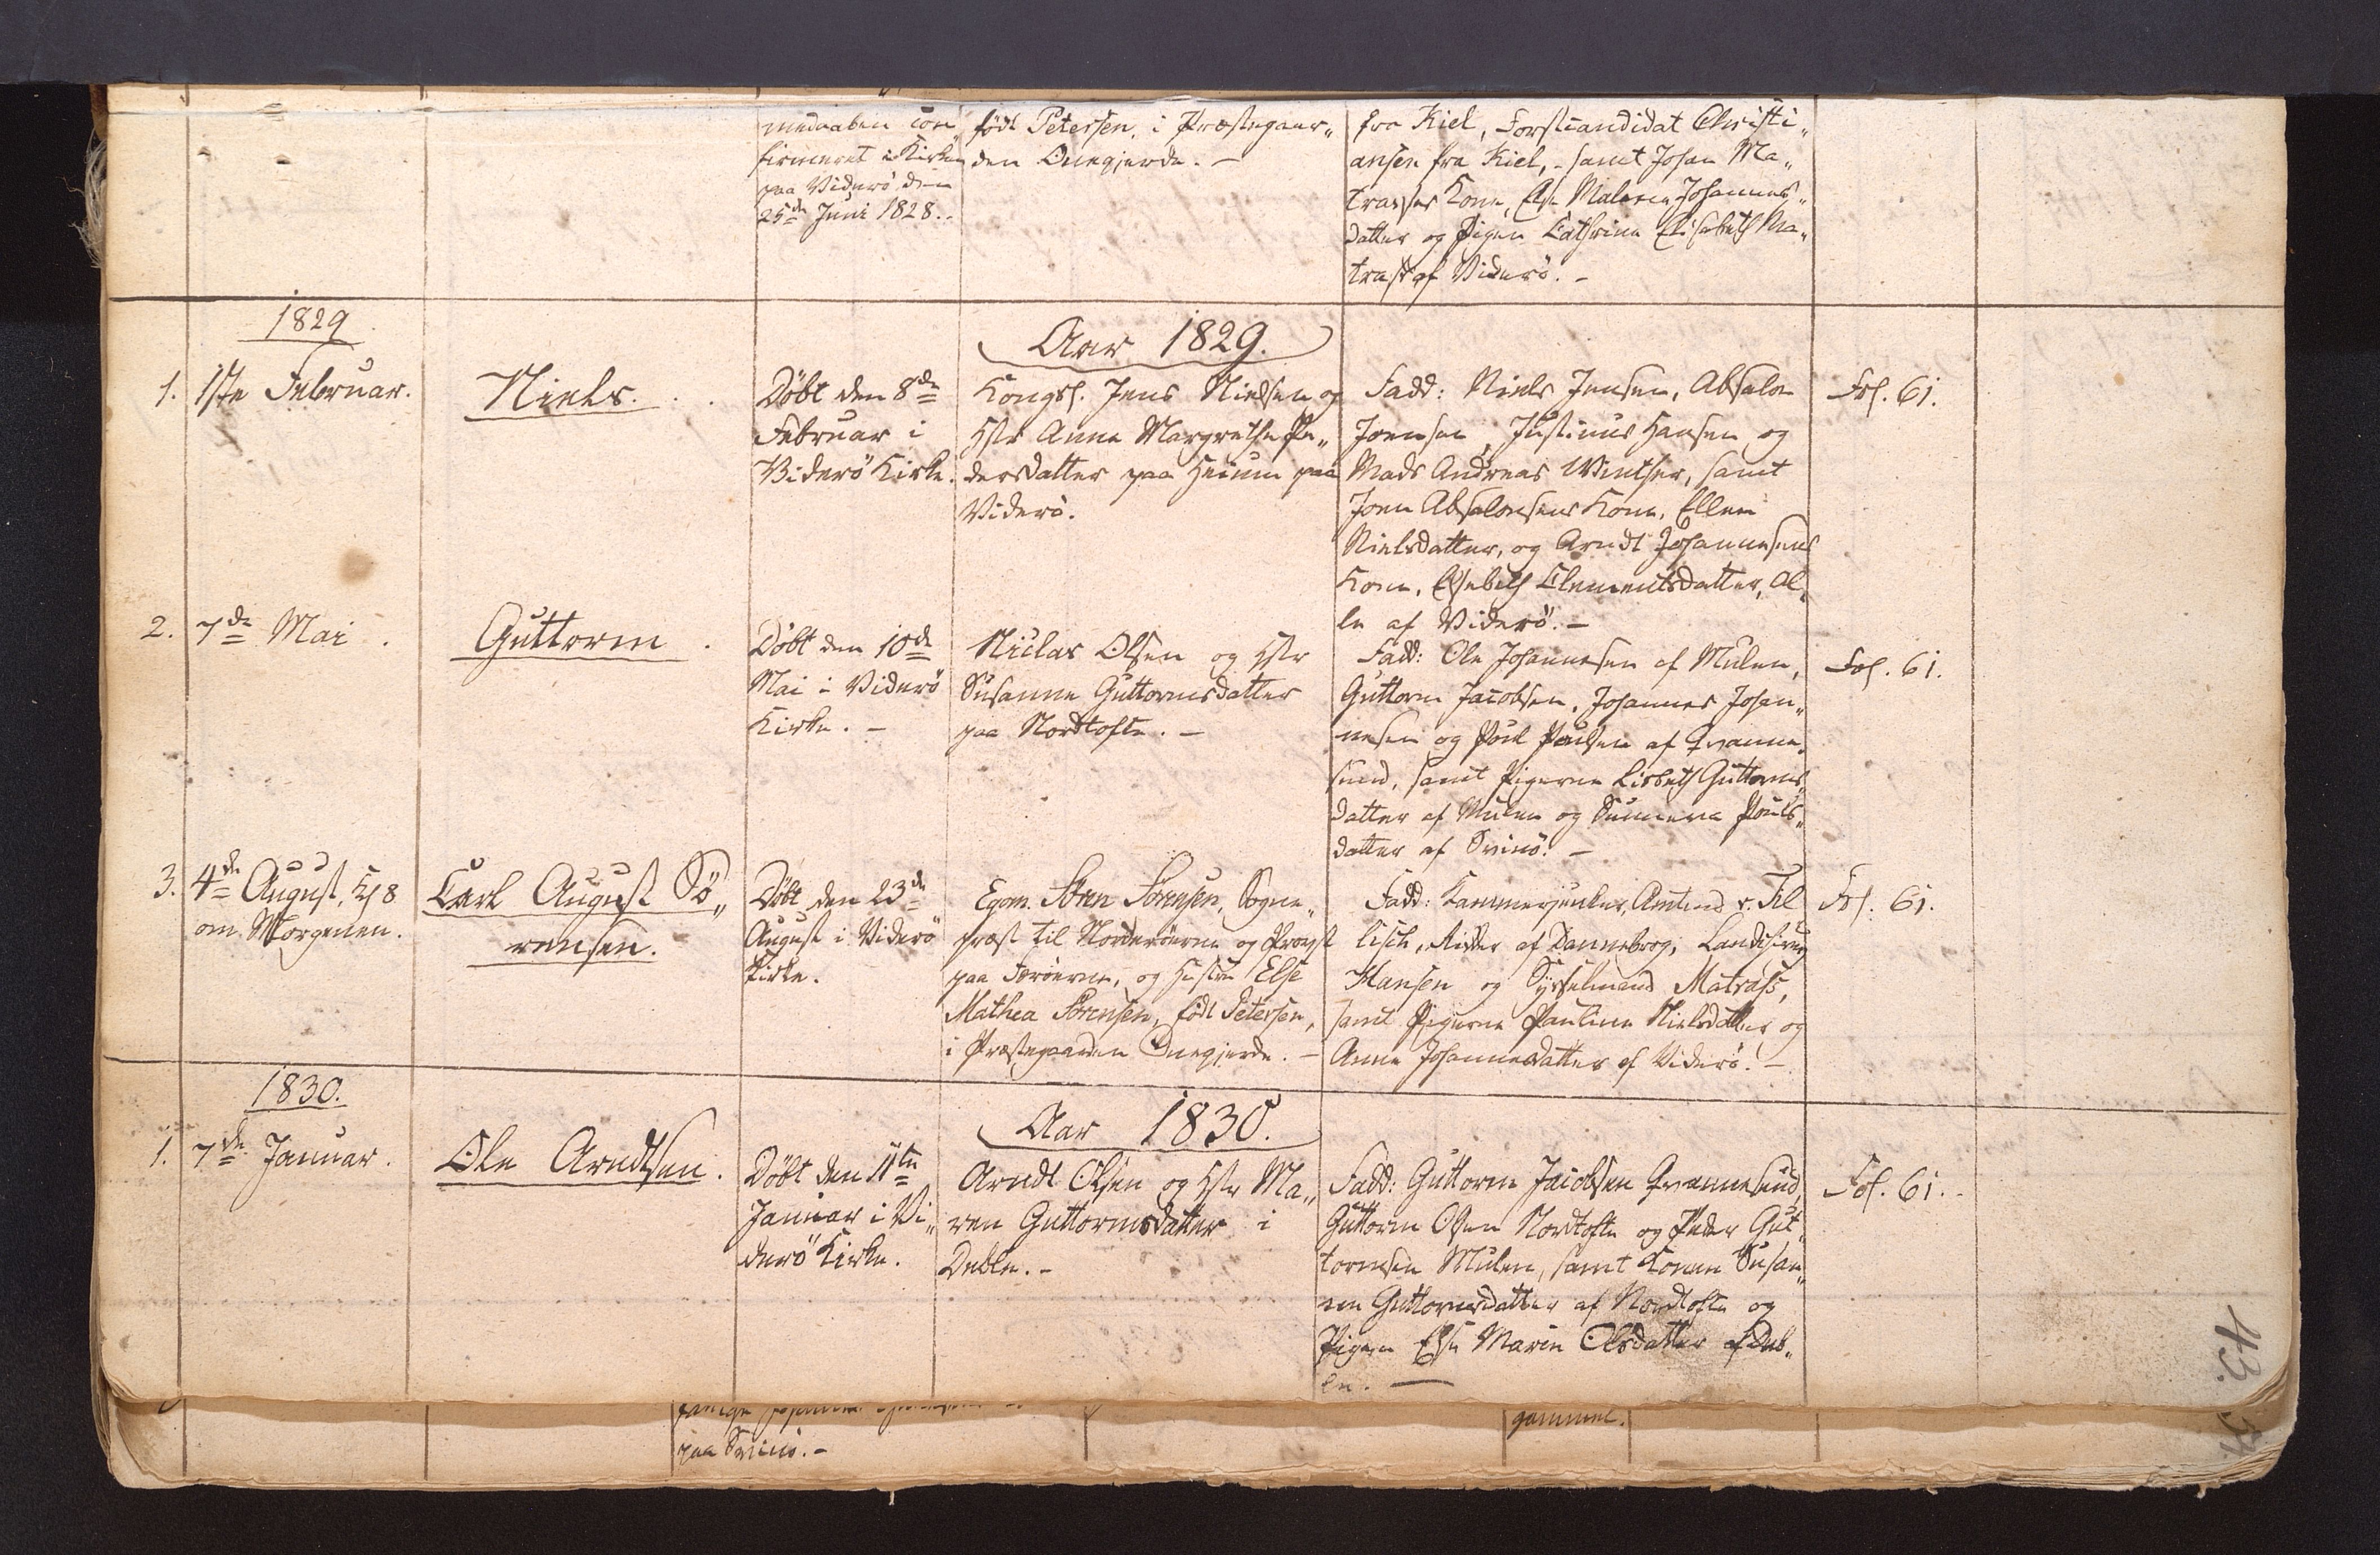 medaaben con„
firmeret i Kirken
paa Viderö den
25de Juni 1828..
född Petersen, i Præstegaar„
den Onegjerde. –
fra Kiel, Forstcandidat Christi„
ansen fra Kiel, – samt Johan Ma„
trasses Kone, Else Malene Johannes„
datter og Pigen Cathrine Elisabeth Ma„
trass af Viderö. –
1829
Aar 1829.
1.
1ste Februar.
Niels.
Döbt den 8de
Februar i
Viderö Kirke.
Kongsf. Jens Nielsen og
Hstr Anne Margrethe Pe„
dersdatter paa Heium paa
Viderö.
Fadd: Niels Jensen, Absalon
Joensen, Justinus Hansen og
Mads Andreas Winther, samt
Joen Absalonsens Kone, Ellen
Nielsdatter, og Arndt Johannesens
Kone, Elsebeth Clementsdatter, Al„
le af Viderö. –
Fol. 61.
2.
7de Mai.
Guttorm.
Döbt den 10de
Mai i Viderö
Kirke. –
Niclas Olsen og Hstr
Susanne Guttormsdatter
paa Nordtofte. –
Fadd: Ole Johannesen af Mulen,
Guttorm Jacobsen, Johannes Johan„
nesen og Poul Poulsen af Qvanne„
sund, samt Pigerne Lisbeth Guttorms„
datter af Mulen og Sunneva Pouls„
datter af Svinö. –
Fol. 61.
3.
4de August, Kl 8
om Morgenen.
Carl August Sö„
rensen.
Döbt den 23de
August i Viderö
Kirke.
Egom. Sören Sörensen, Sogne„
præst til Norderöerne og Provst
paa Færöerne, og Hustru Else
Mathea Sörensen, född Petersen,
i Præstegaarden Onegjerde. –
Fadd: Kammerjunker, Amtmd v. Til
lisch, Ridder af Dannebrog, Landchirurg
Hansen og Sysselmand Matrass,
samt Pigerne Pauline Nielsdatter og
Anne Johannesdatter af Viderö. –
Fol. 61.
1830.
Aar 1830.
1.
7de Januar.
Ole Arndtsen.
Döbt den 11te
Januar i Vi„
derö Kirke.
Arndt Olsen og Hstr Ma„
ren Guttormsdatter i
Deble. –
Fadd: Guttorm Jacobsen Qvannesund,
Guttorm Olsen Nordtofte og Peder Gut„
tormsen Mulen, samt Konen Susan„
ne Guttormsdatter af Nordtofte og
Pigen Else Marie Olsdatter af Deb„
le. —
Fol. 61.
43.
paa Svinö. –
gammel.